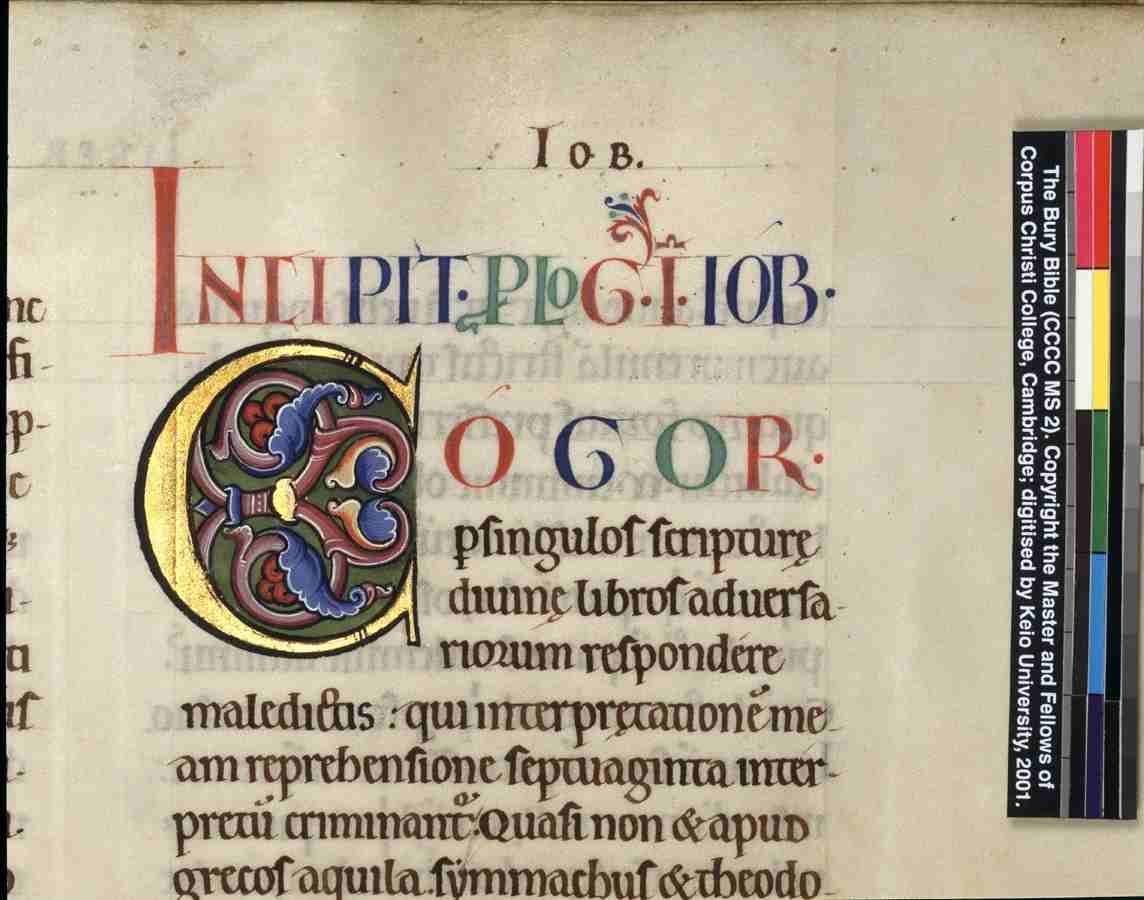 IOB.
INCIPIT·PLOG·I·IOB·
CÓGOR·
ꝑſinguloſ ſcripturę
diuinę libroſ aduerſa-
riorum reſpondére
maledictis : qui interprętationē me-
am reprehenſione ſeptuaginta inter-
pretū criminant᷑: Quaſi non & apud
grecoſ aquila. ſymmachuſ & theodo-
The Bury Bible (CCCC MS 2). Copyright the Master and Fellows of
Corpus Christi College, Cambridge; digitised by Keio University, 2001.